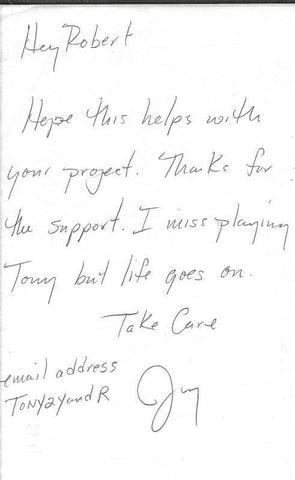 Hey Robert
Hope this helps with
your project. Thanks for
the support. I miss playing
Tony but life goes on.
Take Care
email address
TONY2YandR